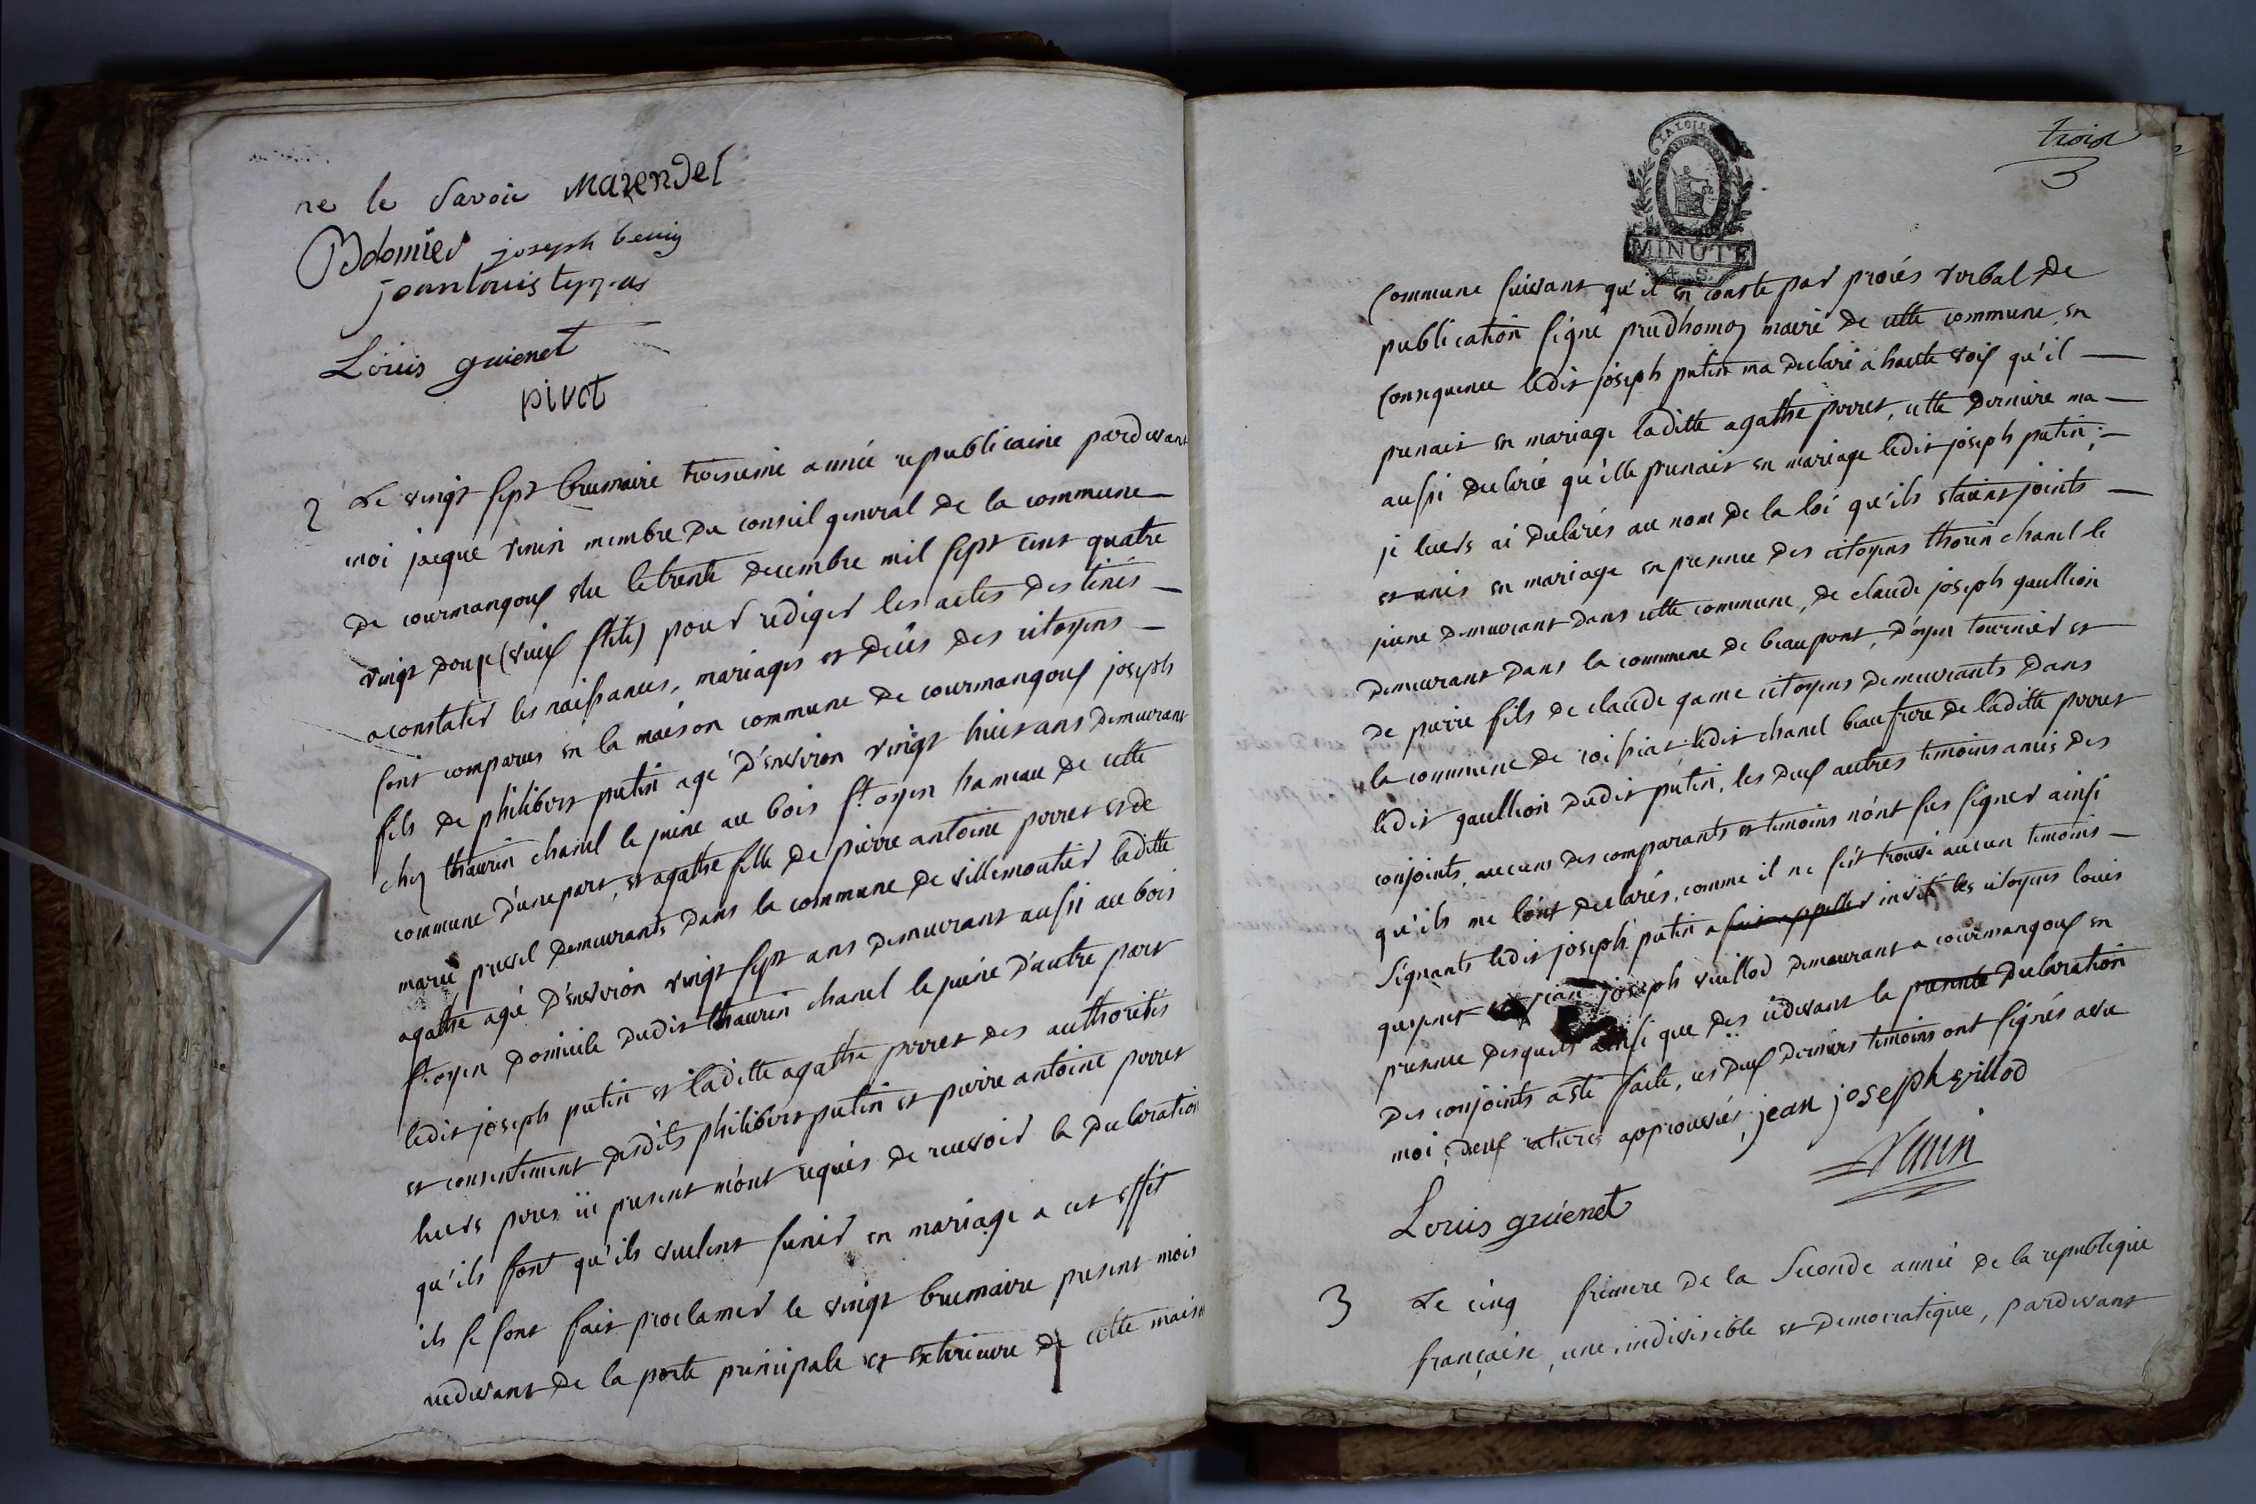 ne le Savoir Marendel
Bdomier joseph beuiy
jeanlouis
Louis guienet
pivot
2 Le vingt sept brumaire troisieme année republicaine pardevant
moi jacque venin membre du conseil general de la commune
de courmangoux élu le trente decembre mil sept cent quatre
vingt douze (vieux stile) pour rediger les actes destinés
a constater les naissances, mariages et décès des citoyens
sont comparus en la maison commune de courmangoux joseph
fils de philibert putin agé d'environ vingt huit ans demeurant
chez thaurin chanel le jeune au bois st. oyen hameau de cette
commune d'une part, et agathe fille de pierre antoine perret et de
marie prevel demeurants dans la commune de villemoutier laditte
agathe agé d'environ vingt sept ans demeurant aussi au bois
st. oyen domicile dudit thaurin chanel le jeune d'autre part
ledit joseph putin et laditte agathe perret des authorités
et consentement desdits philibert putin et pierre antoine perret
leurs peres ici present m'ont requis de recevoir la declaration
qu'ils font qu'ils veulent s'unir en mariage a cet effet
ils se sont fait proclamer le vingt brumaire present mois
au devant de la porte principale et exterieure de cette maison
trois
3
MINUTE
4. S.
commune suivant qu'il en conste par procés verbal de
publication signé prudhomme maire de cette commune, en
consequence ledit joseph putin ma declaré a haute voix qu'il
prenait en mariage laditte agathe perret, cette derniere ma
aussi declaré qu'elle prenait en mariage ledit joseph putin;
je leurs ai declarés au nom de la loi qu'ils etaient joints
et unis en mariage en presence des citoyens thorin chanel le
jeune demeurant dans cette commune, de claude joseph gaullion
demeurant dans la commune de beaupont, d'oyen tournier et
de pierre fils de claude game citoyens demeurants dans
la commune de coisiat; ledit chanel beau frere de laditte perret
ledit gaullion dudit putin, les deux autres temoins amis des
conjoints, aucuns des comparants et temoins n'ont sus signer ainsi
qu'ils me l'ont declarés, comme il ne s'est trouvé aucun temoins
signants ledit joseph putin a fait appeller invité les citoyens louis
guienet et jean joseph vuillod demeurant a courmangoux en
presence desquels ainsi que des cidevant la presente declaration
des conjoints a été faite, ces deux derniers temoins ont signés avec
moi, deux ratures approuvées, jean joseph villod
Venin
Louis guienet
3 Le cinq frimere de la Seconde année de la republique
française, une, indivisible et democratique, pardevant